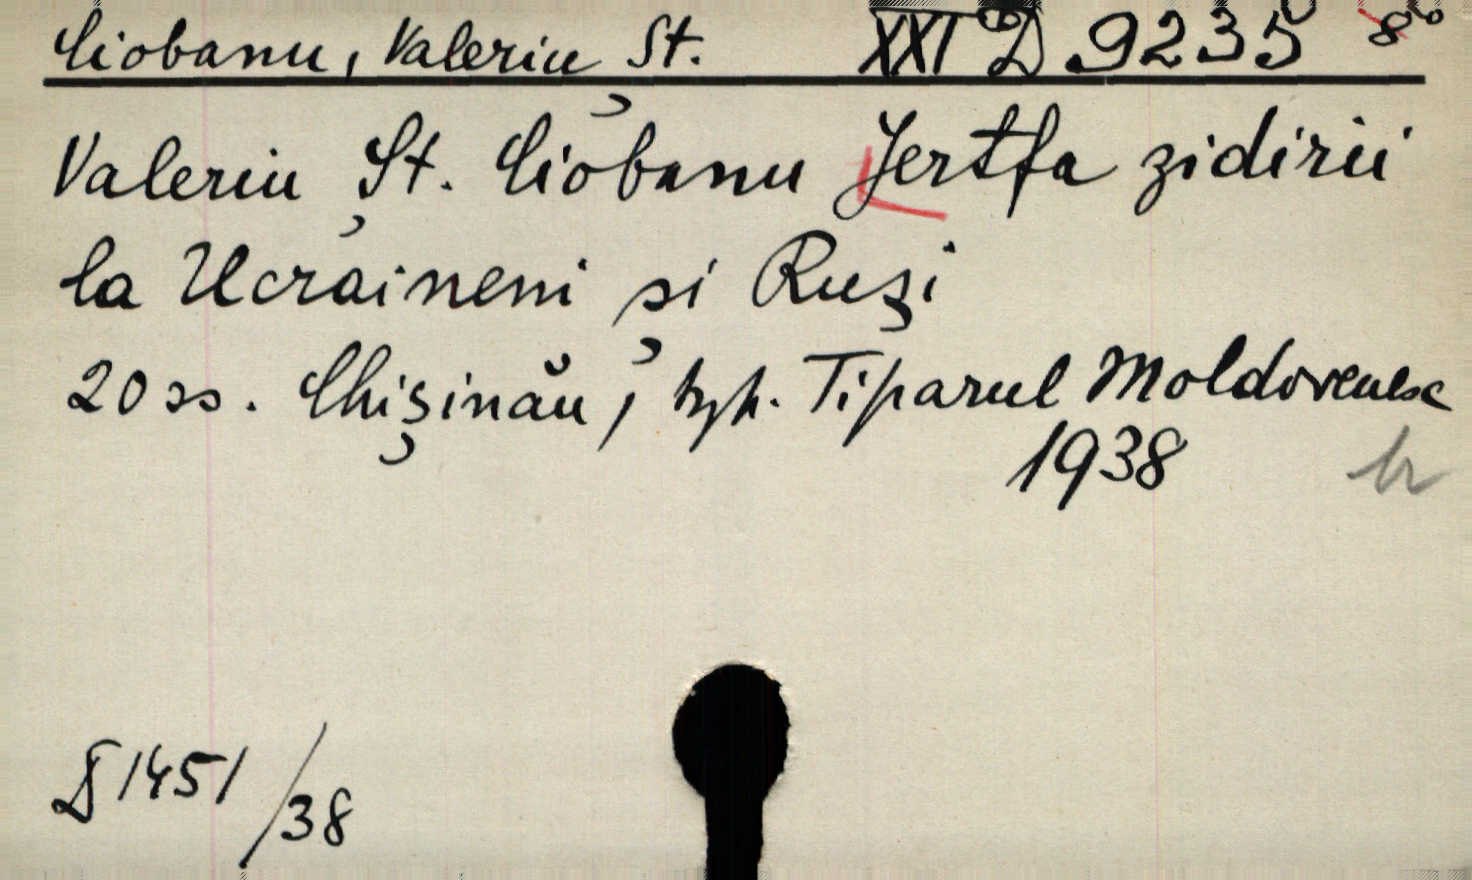 Ciobanu, Valeriu St. XXI D 9235 8º
Valeriu St. Ciobanu Jertfa zidirii
la Ucraineni și Ruși
20 ss. Chișinău, typ. Tiparul Moldovenesc
1938
D 1451/38